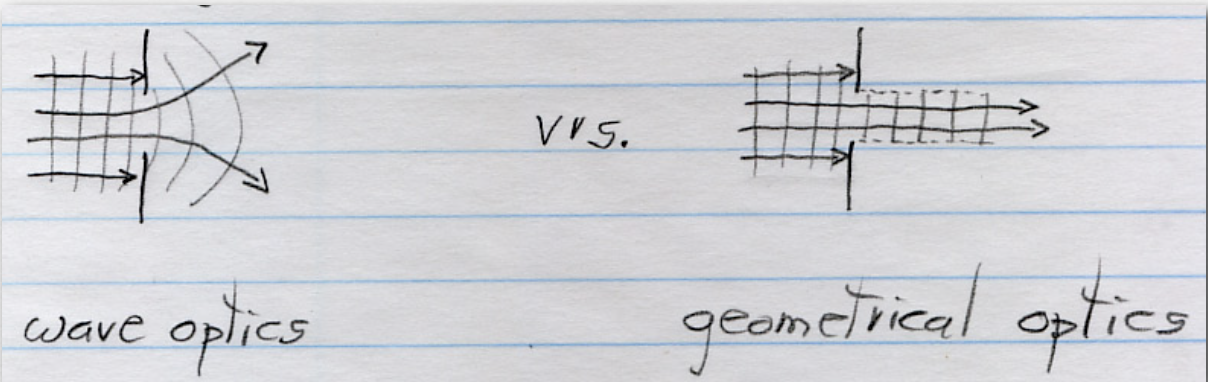 vrs.
wave optics
geometrical optics